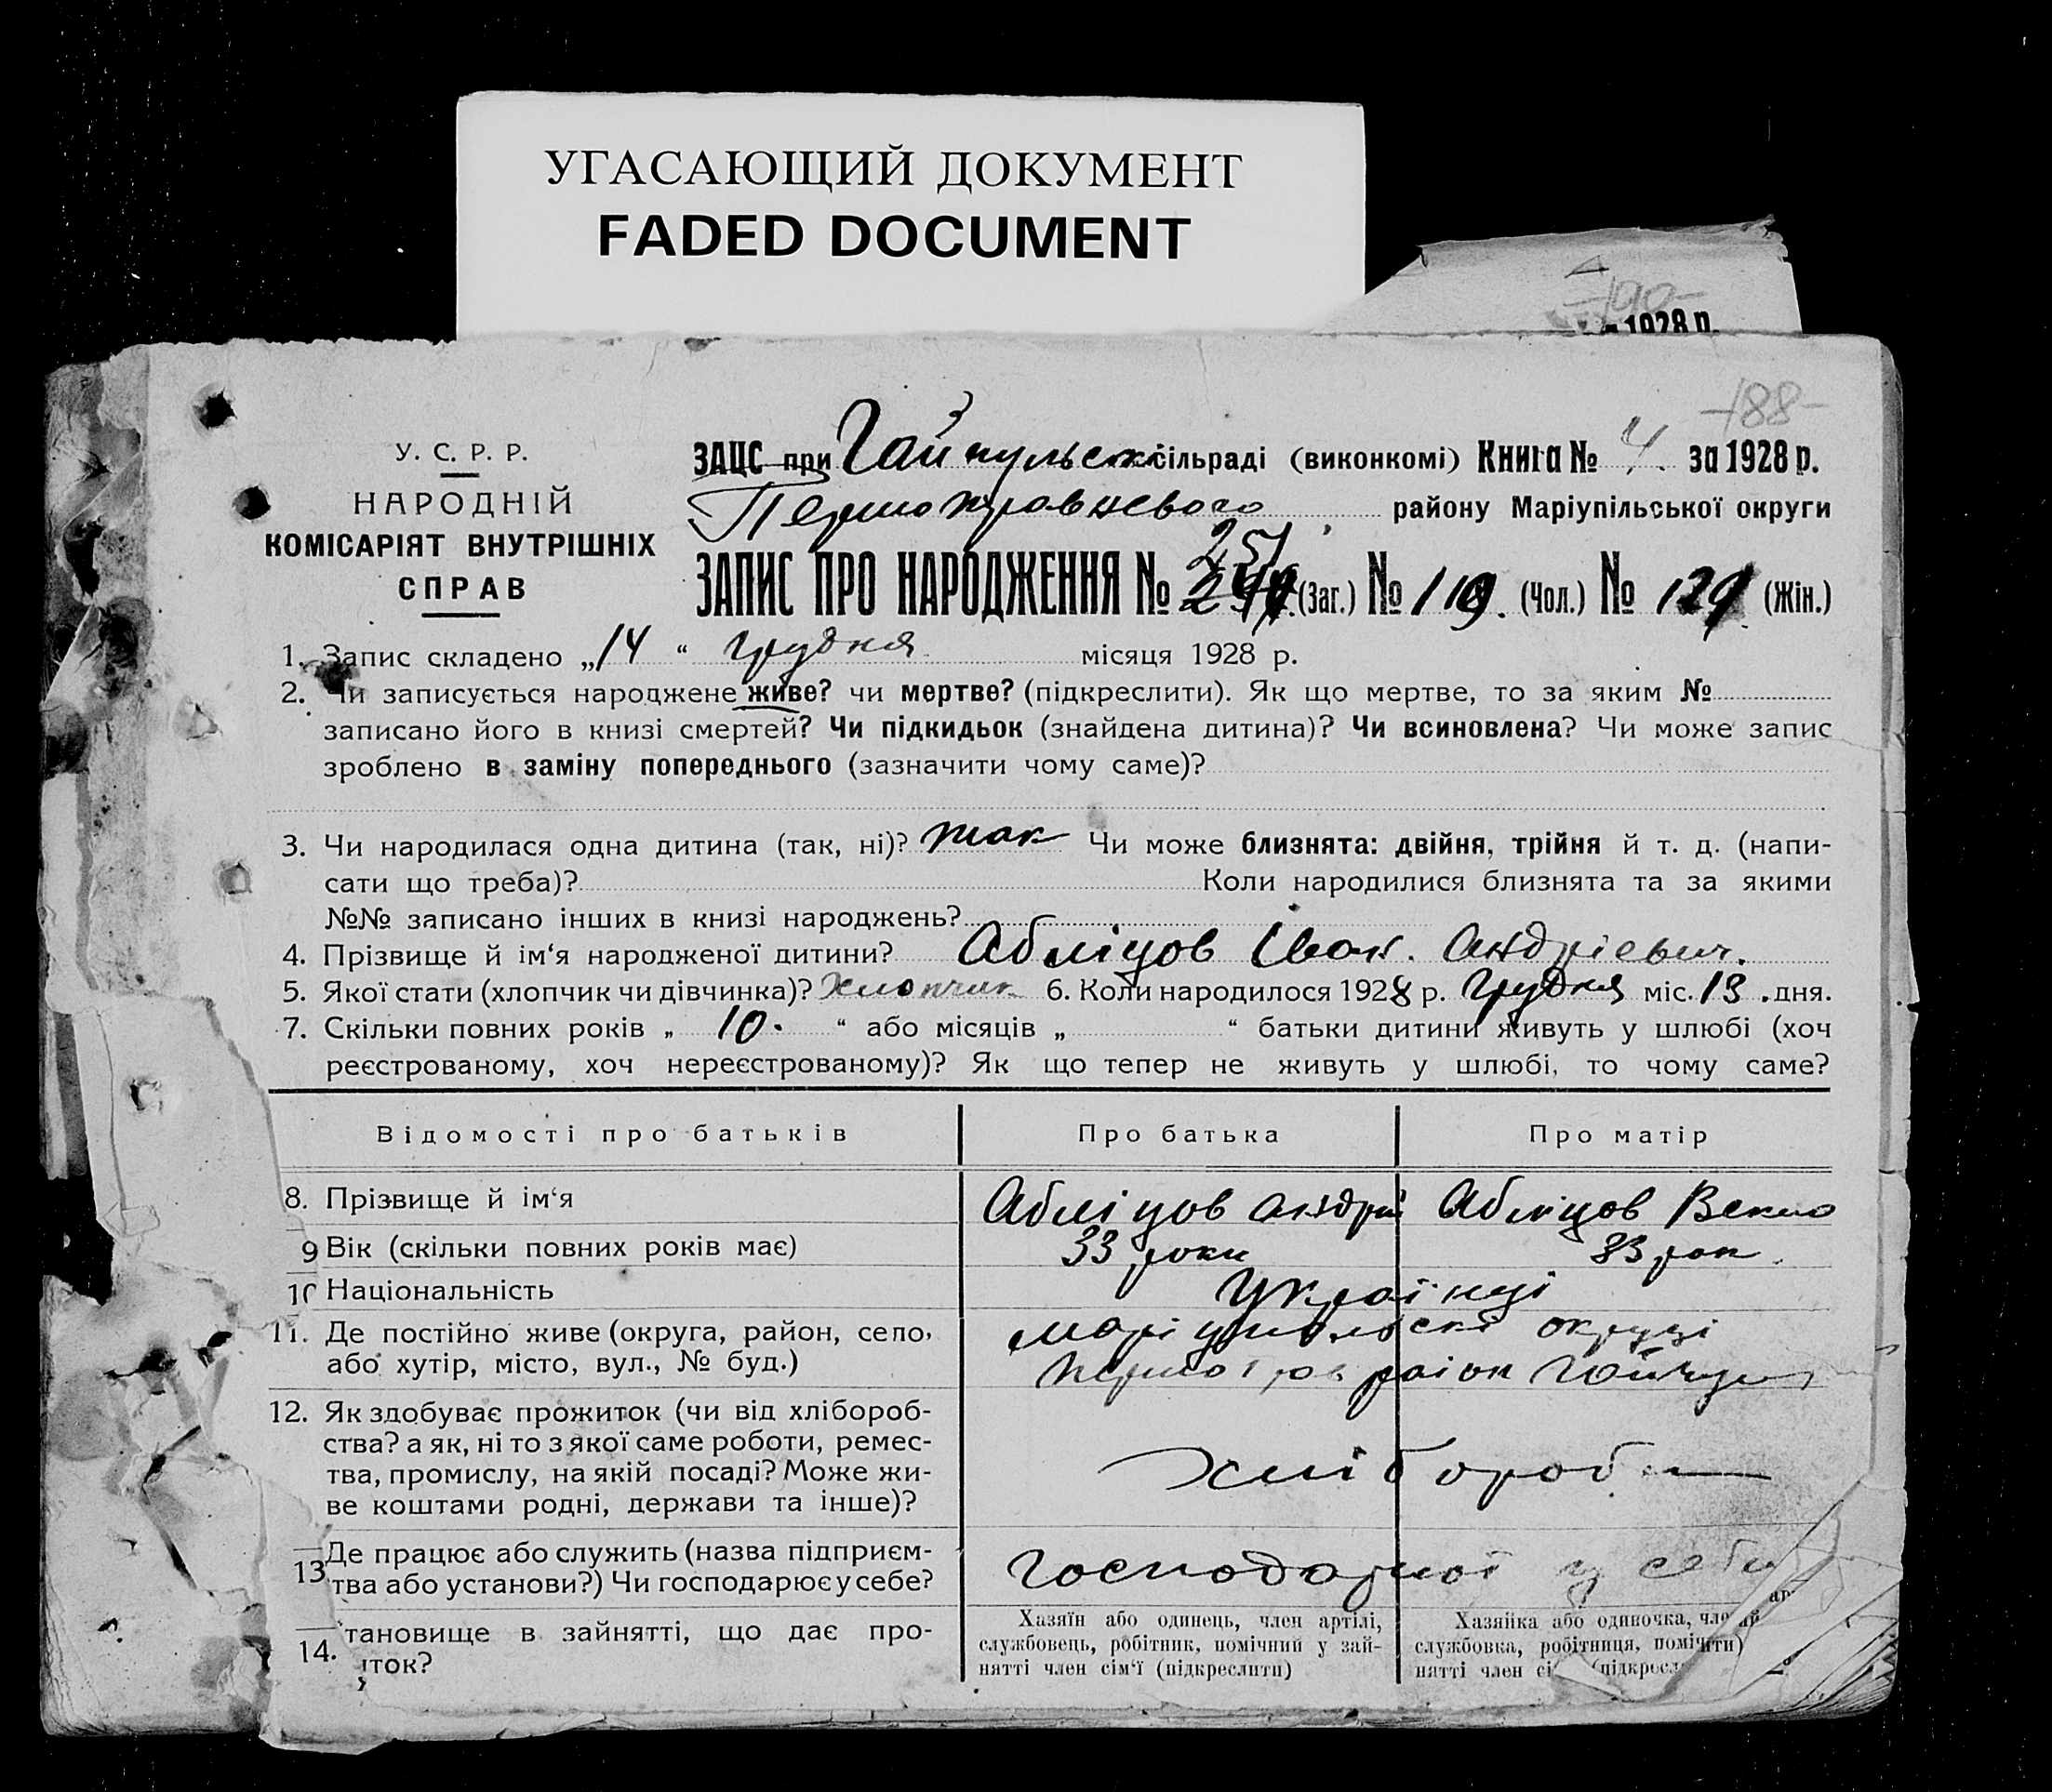 УГАСАЮЩИЙ ДОКУМЕНТ
FADED DOCUMENT
1928 р.
-188-
У. С. Р. Р.
НАРОДНІЙ
КОМІСАРІЯТ ВНУТРІШНІХ
СПРАВ
ЗАЦС при сільраді (виконкомі) Книга № 4. за 1928 р.
району Маріупільської округи
ЗАПИС ПРО НАРОДЖЕННЯ № 251 (Заг.) № 119. (Чол.) № (Жін.)
1. Запис складено „14“ грудня місяця 1928 р.
2. Чи записується народжене живе? чи мертве? (підкреслити). Як що мертве, то за яким №
записано його в книзі смертей? Чи підкидьок (знайдена дитина)? Чи всиновлена? Чи може запис
зроблено в заміну попереднього (зазначити чому саме)?
3. Чи народилася одна дитина (так, ні)? так Чи може близнята: двійня, трійня й т. д. (напи-
сати що треба)? Коли народилися близнята та за якими
№№ записано інших в книзі народжень?
4. Прізвище й ім‘я народженої дитини? Абліцов Іван. Андрієвич.
5. Якої стати (хлопчик чи дівчинка)? Хлопчик 6. Коли народилося 1928 р. Грудня міс. 13. дня.
7. Скільки повних років „ 10. “ або місяців „ “ батьки дитини живуть у шлюбі (хоч
реєстрованому, хоч нереєстрованому)? Як що тепер не живуть у шлюбі, то чому саме?
Відомості про батьків Про батька Про матір
8. Прізвище й ім‘я Абліцов Андрій Абліцов
9 Вік (скільки повних років має) 33 роки 33 рок
10 Національність Українці
11. Де постійно живе (округа, район, село, округі
або хутір, місто, вул., № буд.) район
12. Як здобуває прожиток (чи від хлібороб-
ства? а як, ні то з якої саме роботи, ремес-
тва, промислу, на якій посаді? Може жи-
ве коштами родні, держави та інше)?
Хлібороби
13 Де працює або служить (назва підприєм-
тва або установи?) Чи господарює у себе? у себе
14. тановище в зайнятті, що дає про-
иток?
Хазяїн або одинець, член артілі,
службовець, робітник, помічний у зай-
нятті член сім‘ї (підкреслити)
Хазяйка або одиночка,
службовка, робітниця,
нятті член